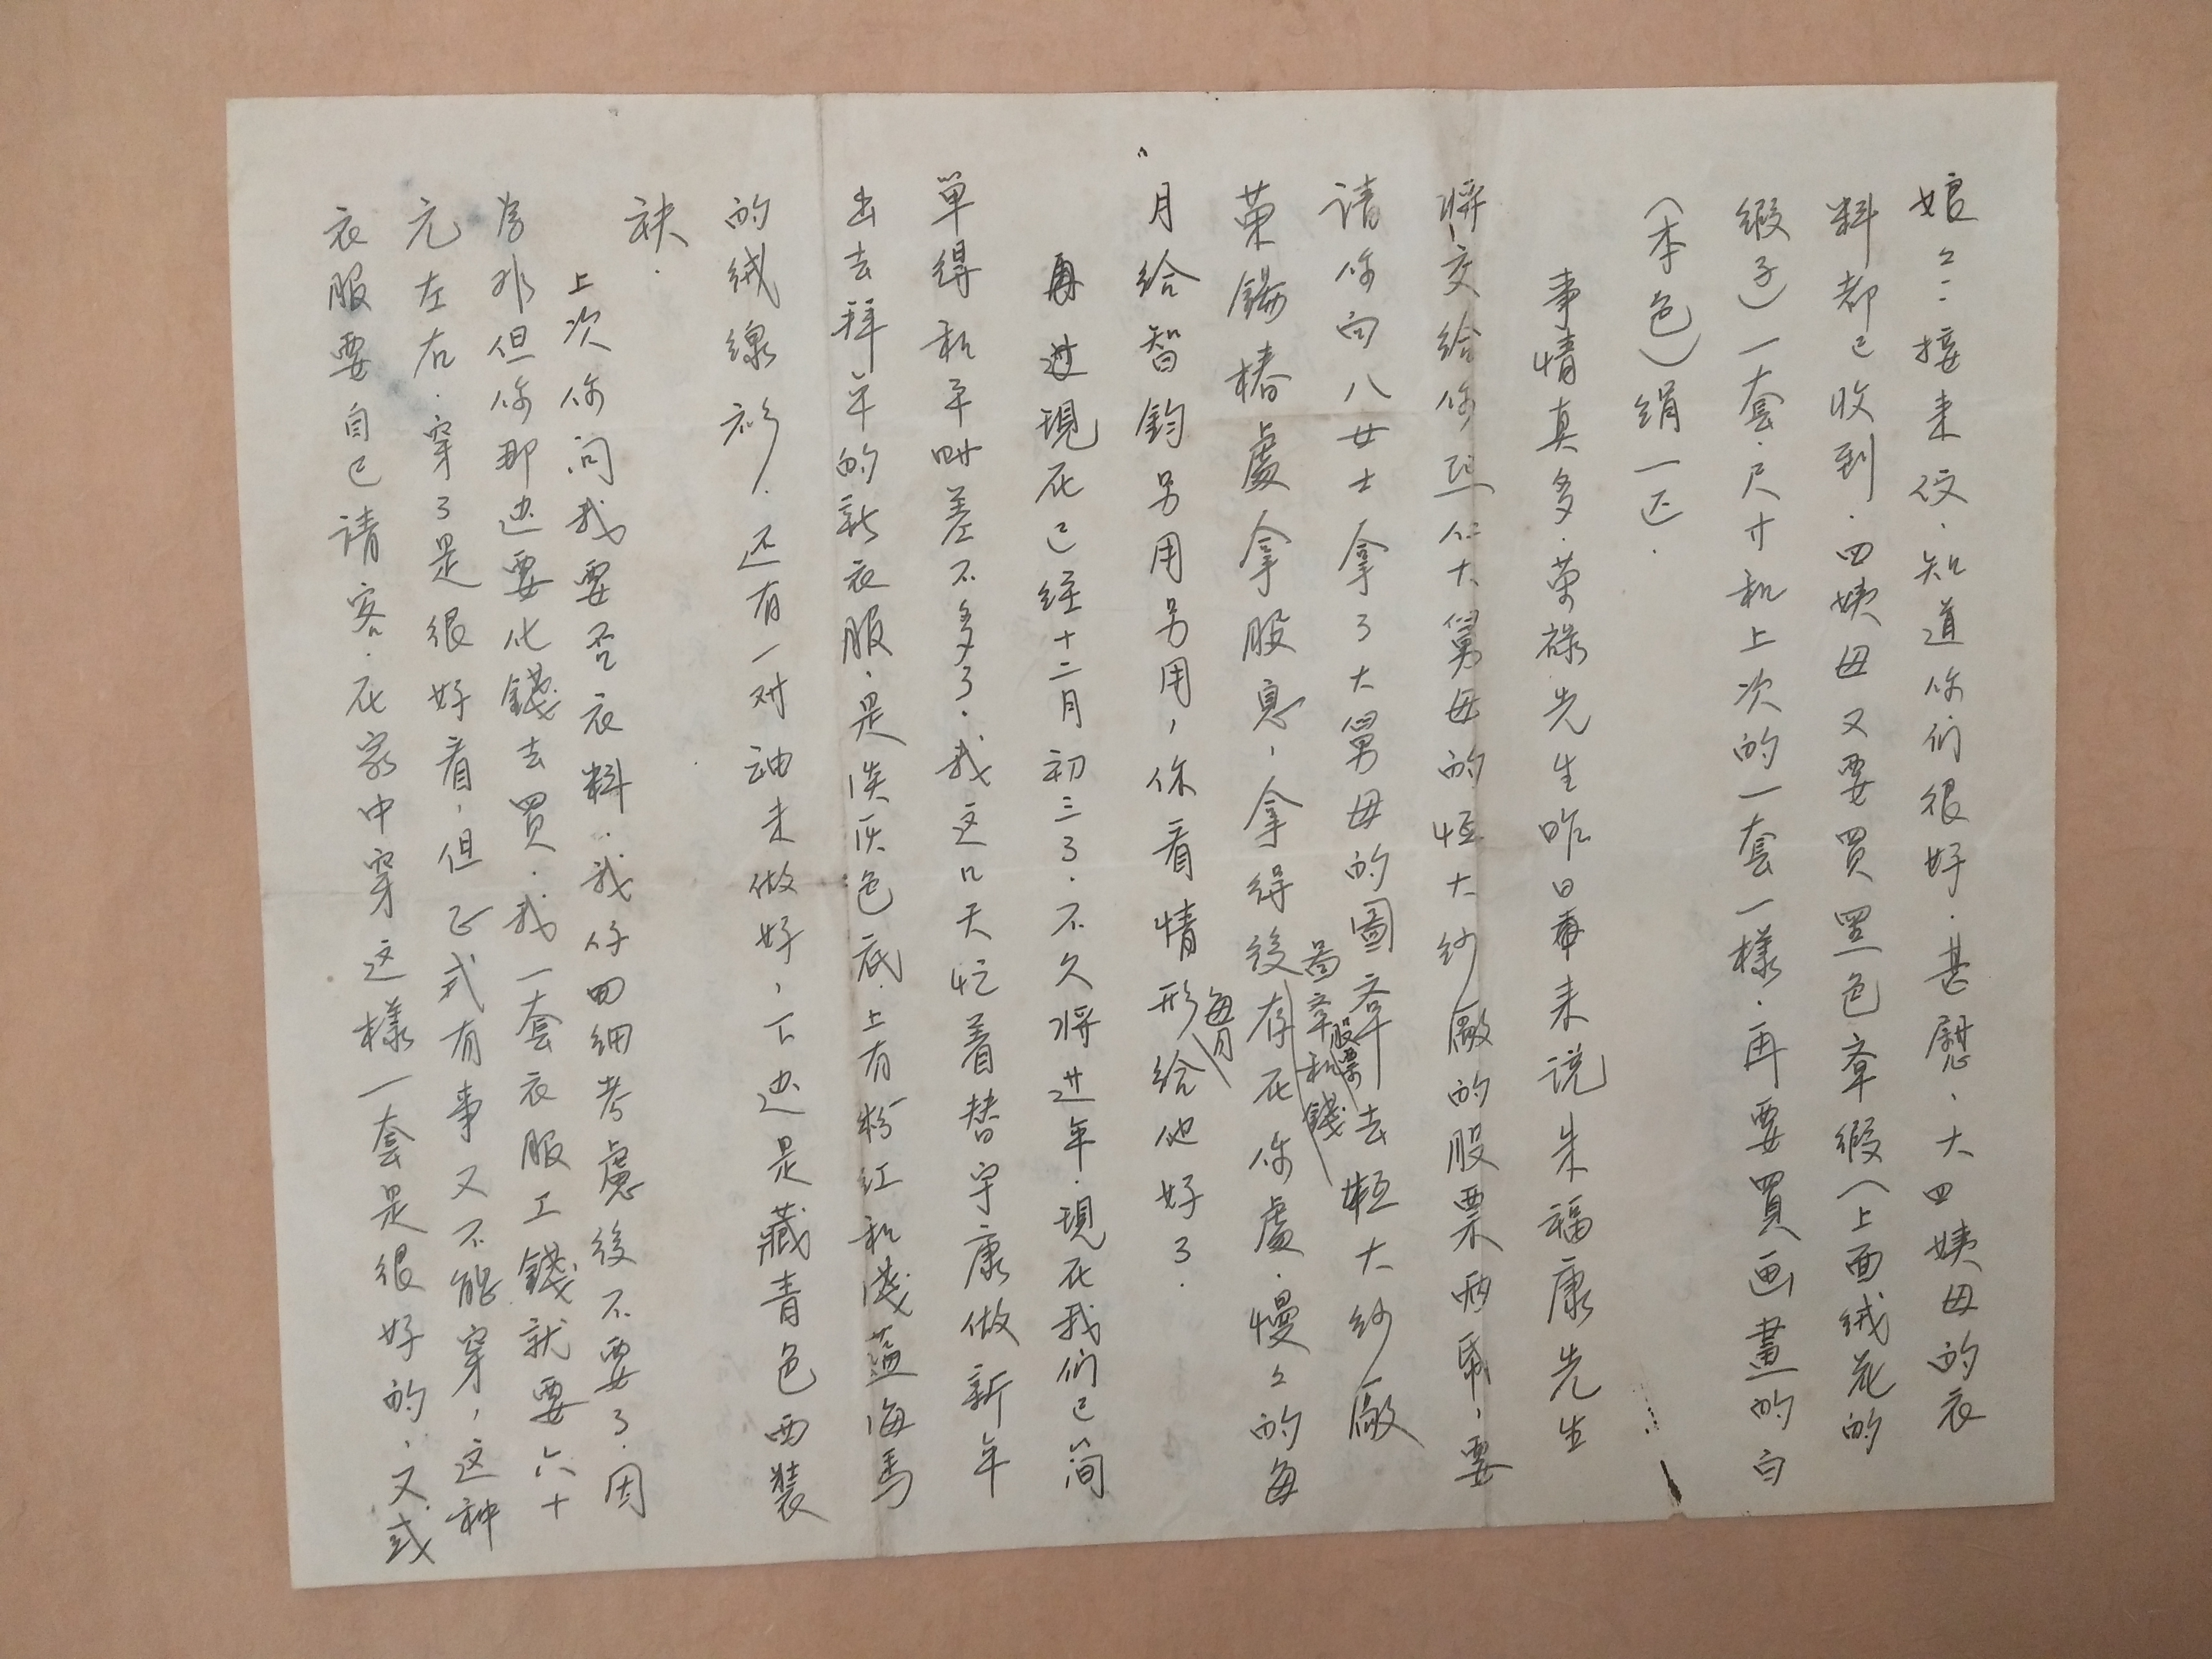 娘々：接来信．知道你们很好．甚慰、大四姨母的衣
料都已收到．四姨母又要買黑色章缎（上面绒花的
缎子）一套．尺寸和上次的一套一樣．再要買画畫的白
（本色）绢一疋．
事情真多．荣禄先生昨日来说朱福康先生
将交给你熙仁大舅母的恒大纱廠的股票兩張，要
请你向八女士拿了大舅母的圖章去恒大纱廠
荣錫椿處拿股息，拿得後存在你處．慢々的每
圖章股票和錢
月给智鈞另用另用，你看情形每月给他好了．
再过現在已经十二月初三了．不久将进年．現在我们已简
單得和平時差不多了．我这几天忙着替宇康做新年
出去拜年的新衣服．是淡灰色底．上有粉红和淺蓝海馬
的绒線衫．还有一对袖未做好，下边是藏青色西裝
袂．
上次你问我要否衣料．我仔细考慮後不要了．因
为非但你那边要化錢去買．我一套衣服工錢就要六十
元左右．穿了是很好看，但正式有事又不能穿，这种
衣服要自己请客．在家中穿这樣一套是很好的，又或